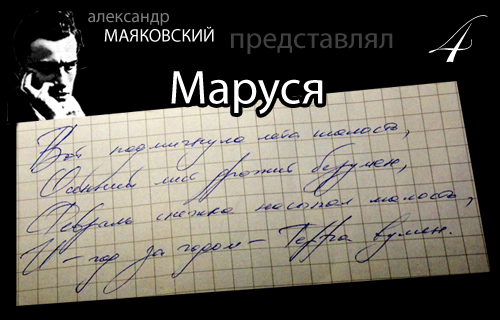 александр
МАЯКОВСКИЙ представлял
4
Маруся
Вот подмигнула лета шалость,
Осенний лист дрожит безумен,
Февраль снежка насыпал малость,
И – год за годом – Терра вумен.